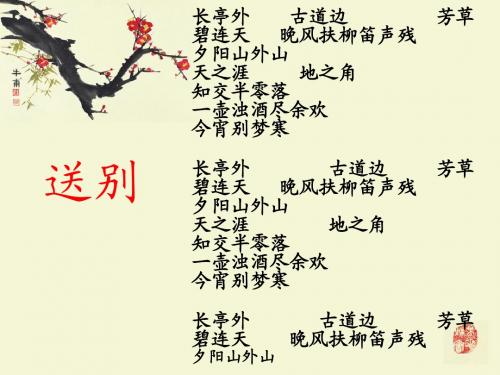 长亭外 古道边 芳草
碧连天 晚风扶柳笛声残
夕阳山外山
天之涯 地之角
知交半零落
一壶浊酒尽余欢
今宵别梦寒
送别
长亭外 古道边 芳草
碧连天 晚风扶柳笛声残
夕阳山外山
天之涯 地之角
知交半零落
一壶浊酒尽余欢
今宵别梦寒
长亭外 古道边 芳草
碧连天 晚风扶柳笛声残
夕阳山外山